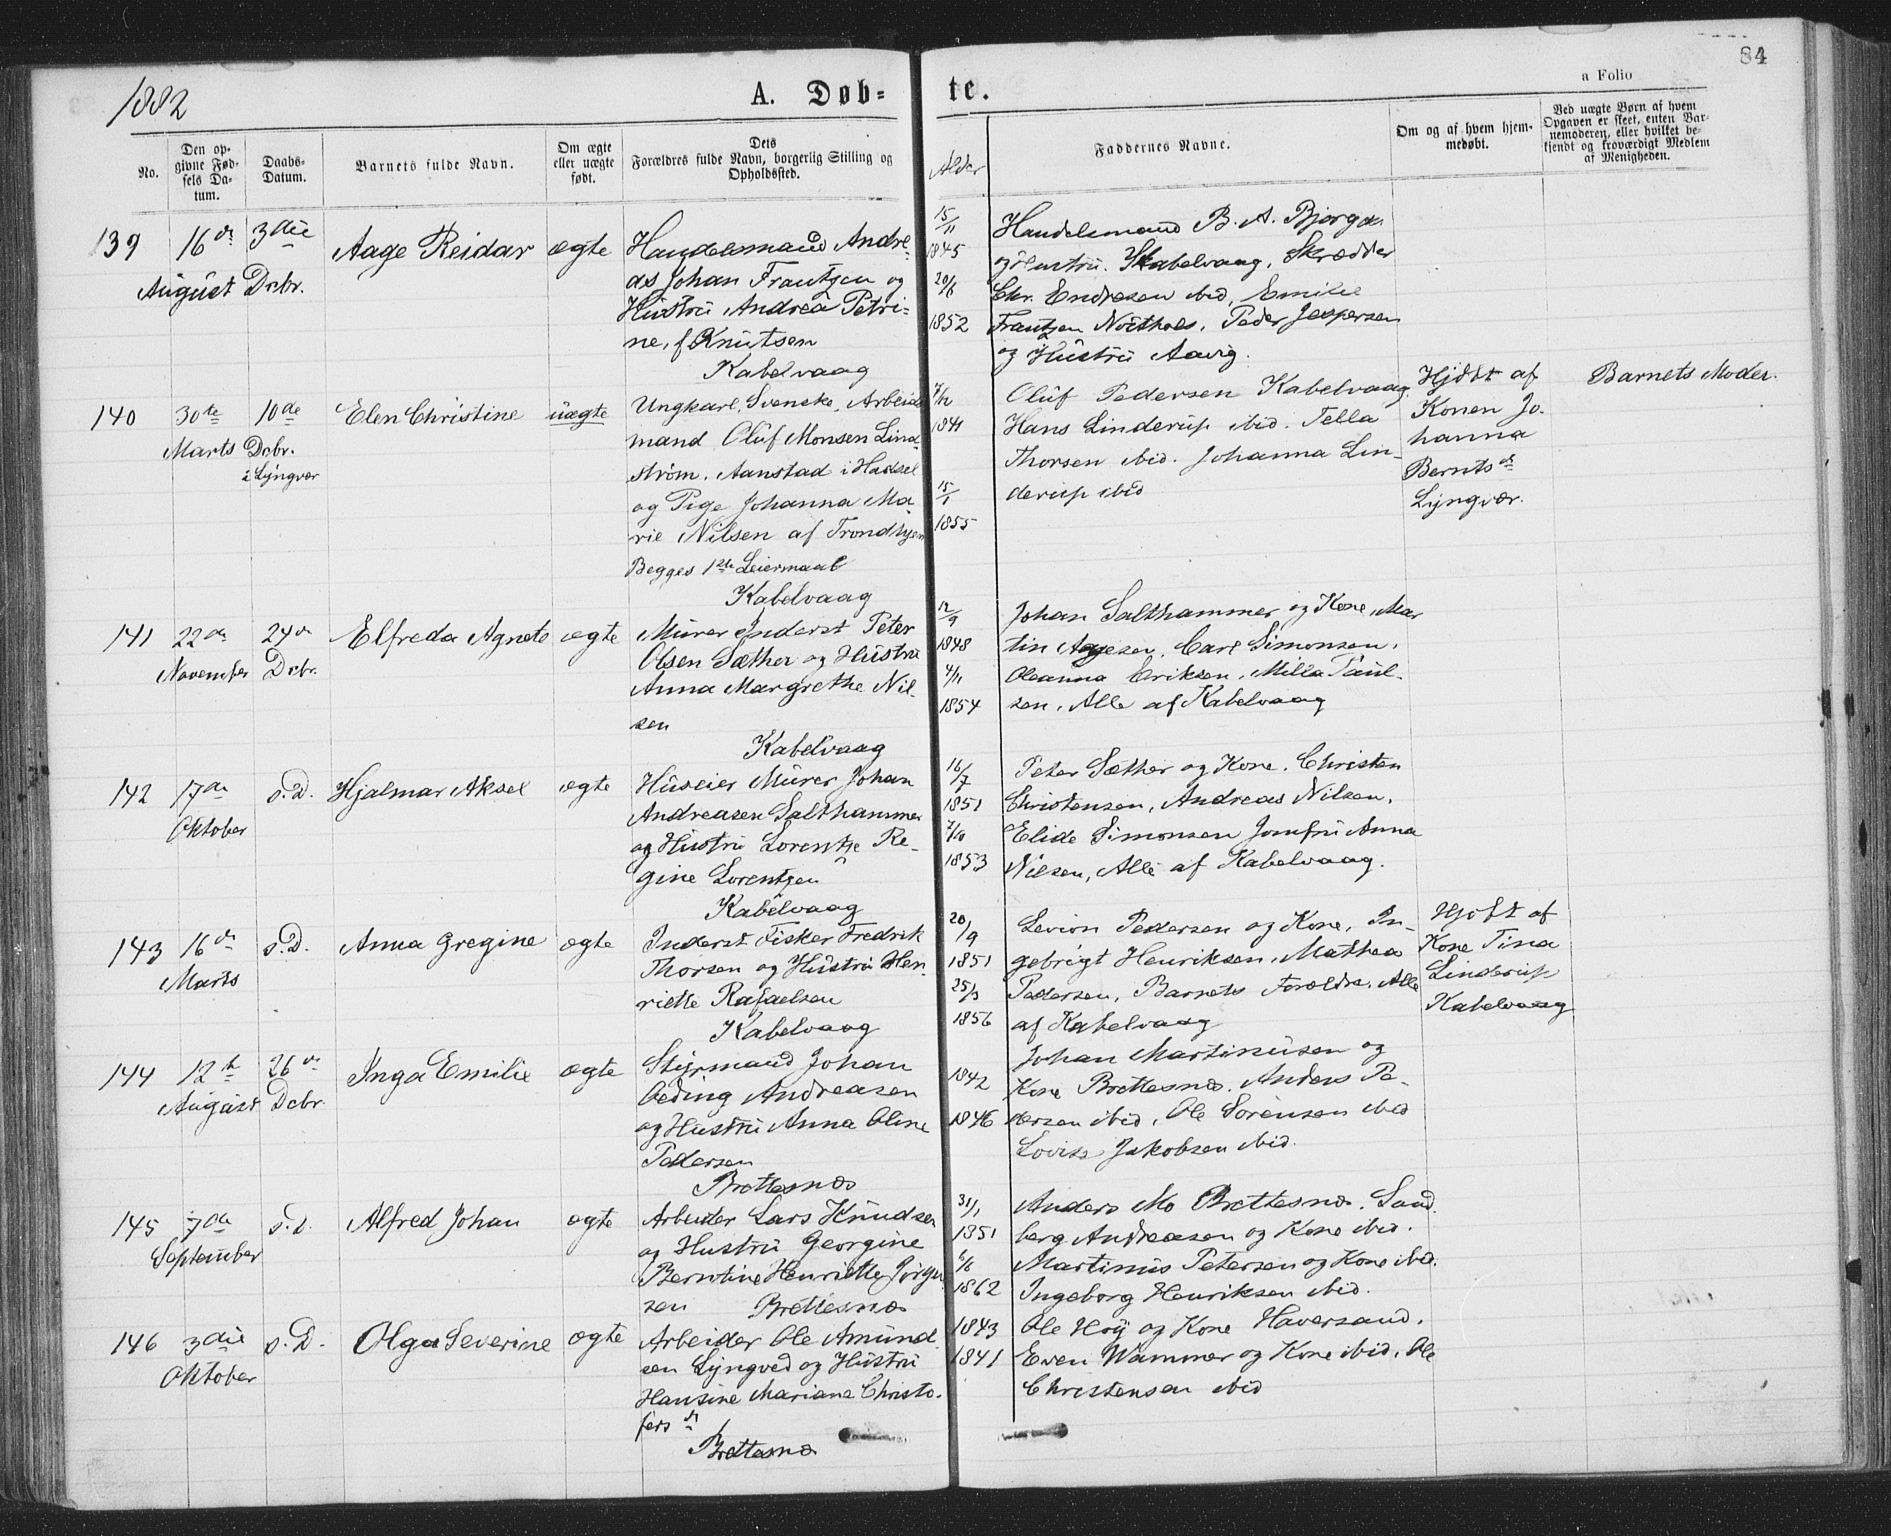 1882
A. Døb-
te.
84
a Folio
No.
Den op-
givne Fød-
sels Da-
tum.
Daabs-
Datum.
Barnets fulde Navn.
Om ægte
eller uægte
født.
Dets
Forældres fulde Navn, borgerlig Stilling og
Opholdssted.
Alder
Faddernes Navne.
Om og af hvem hjem-
medøbt.
Ved uægte Børn af hvem
Opgaven er skeet, enten Bar-
nemoderen, eller hvilket be-
kjendt og troværdigt Medlem
af Menigheden.
139
16de
August
3die
Dcbr.
Aage Reidar
ægte
Handelsmand Andre-
as Johan Frantzen og
Hustru Andrea Petri-
ne, f. Knutsen
Kabelvaag
15/11
1845
20/8
1852
Handelsmand B. A. Bjorge
og Hustru. Kabelvaag, Skrædder
Chr. Endresen ibid, Emilie
Frantzen, Peder Jespersen
og Hustru Aavig.
140
30te
Marts
10de
Dcbr.
i Lyngvær
Elen Christine
uægte
Ungkarl, Svenske, Arbeids
mand Oluf Monsen Lind-
strøm. Aanstad i Hadsel
og Pige Johanna Ma-
rie Nilsen af Trondhjem
Begges 1ste Leiermaal
Kabelvaag
7/12
1841
15/1
1855
Oluf Pedersen Kabelvaag.
Hans Linderup ibid. Tella
Thorsen ibid. Johanna Lin-
derup ibid
Hjdbt af
Konen Jo-
hanna
Berntsdr
Lyngvær.
Barnets Moder.
141
22de
November
24de
Dcbr.
Elfreda Agnete
ægte
Murer Inderst Peter
Olsen Sæther og Hustru
Anna Margrethe Nil-
sen
Kabelvaag
12/9
1848
4/11
1854
Johan Salthammer og Kone, Mar
tin Agesen, Carl Simonsen.
Oleanna Eriksen, Milla Paul-
sen. Alle af Kabelvaag
142
17de
Oktober
s. D.
Hjalmar Aksel
ægte
Huseier Murer Johan
Andreasen Salthammer
og Hustru Lorentze Re-
gine Lorentzen
Kabelvaag
16/7
1851
7/10
1853
Peter Sæther og Kone. Christen
Christensen, Andreas Nilsen.
Elide Simonsen Jomfru Anna
Nielsen, Alle af Kabelvaag.
143
16de
Marts
s. D.
Anna Gregine
ægte
Inderst Fisker Fredrik
Thorsen og Hustru Hen-
riette Rafaelsen
Kabelvaag
20/9
1851
25/3
1856
Levion Pedersen og Kone, In-
gebrigt Henriksen, Mathea
Pedersen, Barnets Forældre. Alle
af Kabelvaag
Hjdbt af
Kone Tina
Linderup
Kabelvaag
144
12te
August
26de
Dcbr
Inga Emilie
ægte
Styrmand Johan
Oeding Andreasen
og Hustru Anna Oline
Pedersen
Brettesnæs
1842
1846
Johan Martinusen og
Kone Brettesnæs. Anders Pe-
dersen ibid, Ole Sørensen ibid
Lovise Jakobsen ibid.
145
7de
September
s. D.
Alfred Johan
ægte
Arbeider Lars Knudsen
og Hustru Georgine
Berntine Henriette Jørgen
sen Brettesnæs
31/1
1851
6/6
1862
Anders Mo Brettesnæs. Sand
berg Andreasen og Kone ibid.
Martinus Petersen og Kone ibid.
Ingeborg Henriksen ibid.
146
3die
Oktober
s. D.
Olga Severine
ægte
Arbeider Ole Amund
sen Lyngved og Hustru
Hansine Mariane Christo-
fersdr
Brettesnæs
1843
1841
Ole Hoy og Kone Haversand,
Even Wammer og Kone ibid, Ole
Christensen ibid